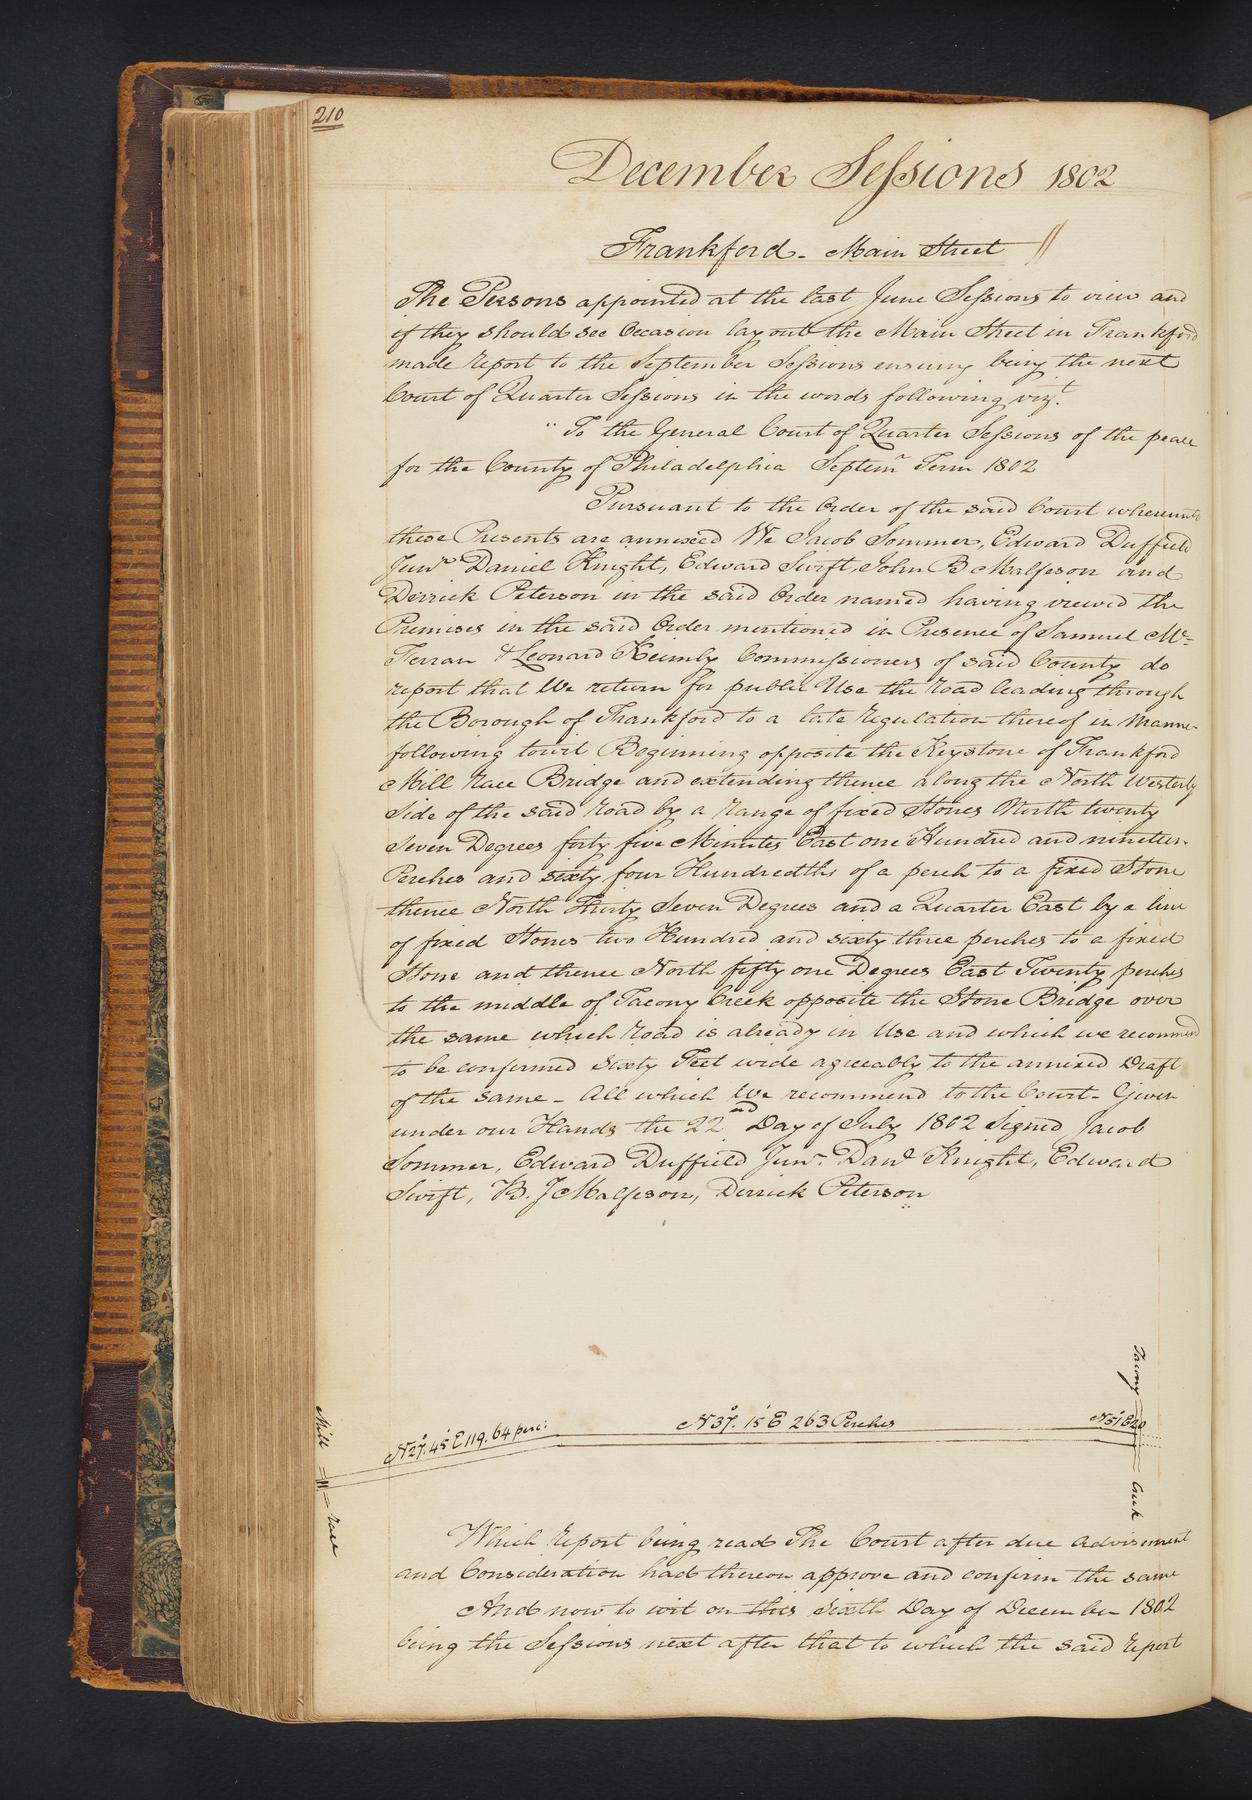 210
December Sessions 1802
Frankford - Main Street
The Persons appointed at the last June Sessions to view and
if they should see Occasion lay out the Main Street in Frankford
made report to the September Sessions ensuing being the next
Court of Quarter Sessions in the words following vizt.
"To the General Court of Quarter Sessions of the peace
for the County of Philadelphia Septemr Term 1802
Pursuant to the Order of the said Court whereunto
these Presents are annexed We Jacob Sommer, Edward Duffield
Junr Daniel Knight, Edward Swift, John B Malfeson and
Derrick Peterson in the said Order named having viewed the
Premises in the said Order mentioned in Presence of Samuel Mc=
Ferran & Leonard Keimly Commissioners of said County do
report that We return for public Use the road leading through
the Borough of Frankford to a late regulation thereof in Manner
following towit Beginning opposite the Keystone of Frankford
Mill race Bridge and extending thence along the North Westerly
side of the said road by a range of fixed Stones North twenty
seven Degrees forty five Minutes East one Hundred and nineteen
Perches and sixty four Hundredths of a perch to a fixed Stone
thence North Thirty Seven Degrees and a Quarter East by a line
of fixed Stones two Hundred and sixty three perches to a fixed
Stone and thence North fifty one Degrees East Twenty perches
to the middle of Tacony Creek opposite the Stone Bridge over
the same which road is already in Use and which we recommend
to be confirmed Sixty Feet wide agreeably to the annexed Draft
of the same - All which We recommend to the Court - Given
under our Hands the 22nd Day of July 1802 Signed Jacob
Sommer, Edward Duffield Junr. Danl Knight, Edward
Swift, B. J Malfeson, Derrick Peterson"
Tacony Creek
N 37°. 15' E 263 Perches
N 51 E 20
N 27°. 45' E 119. 64 perc:
Mill race
Which report being read The Court after due advisement
and Consideration had thereon approve and confirm the same
And now to wit on this sixth Day of December 1802
being the Sessions next after that to which the said report